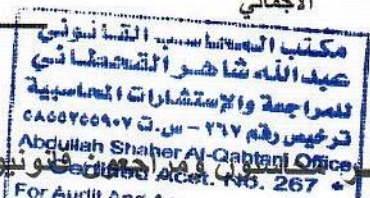 الاجمالي
مكتب المحاسب القانوني
عبدالله شاهر القحطاني
للمراجعة والإستشارات المحاسبية
ترخيص رقم ٢٦٧ - س.ت ٥٨٥٥٢٥٥٩٠٧
Abdullah Shaher Al-Qahtani Office
Certified Accet. NO. 267
محاسبون ومراجعون قانونيو
For Audit And